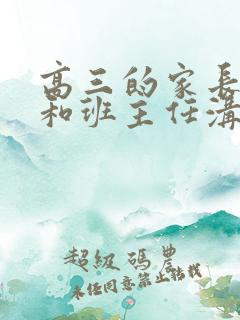 高三的家長
和班主任溝
超級碼農
未經同意禁止轉載